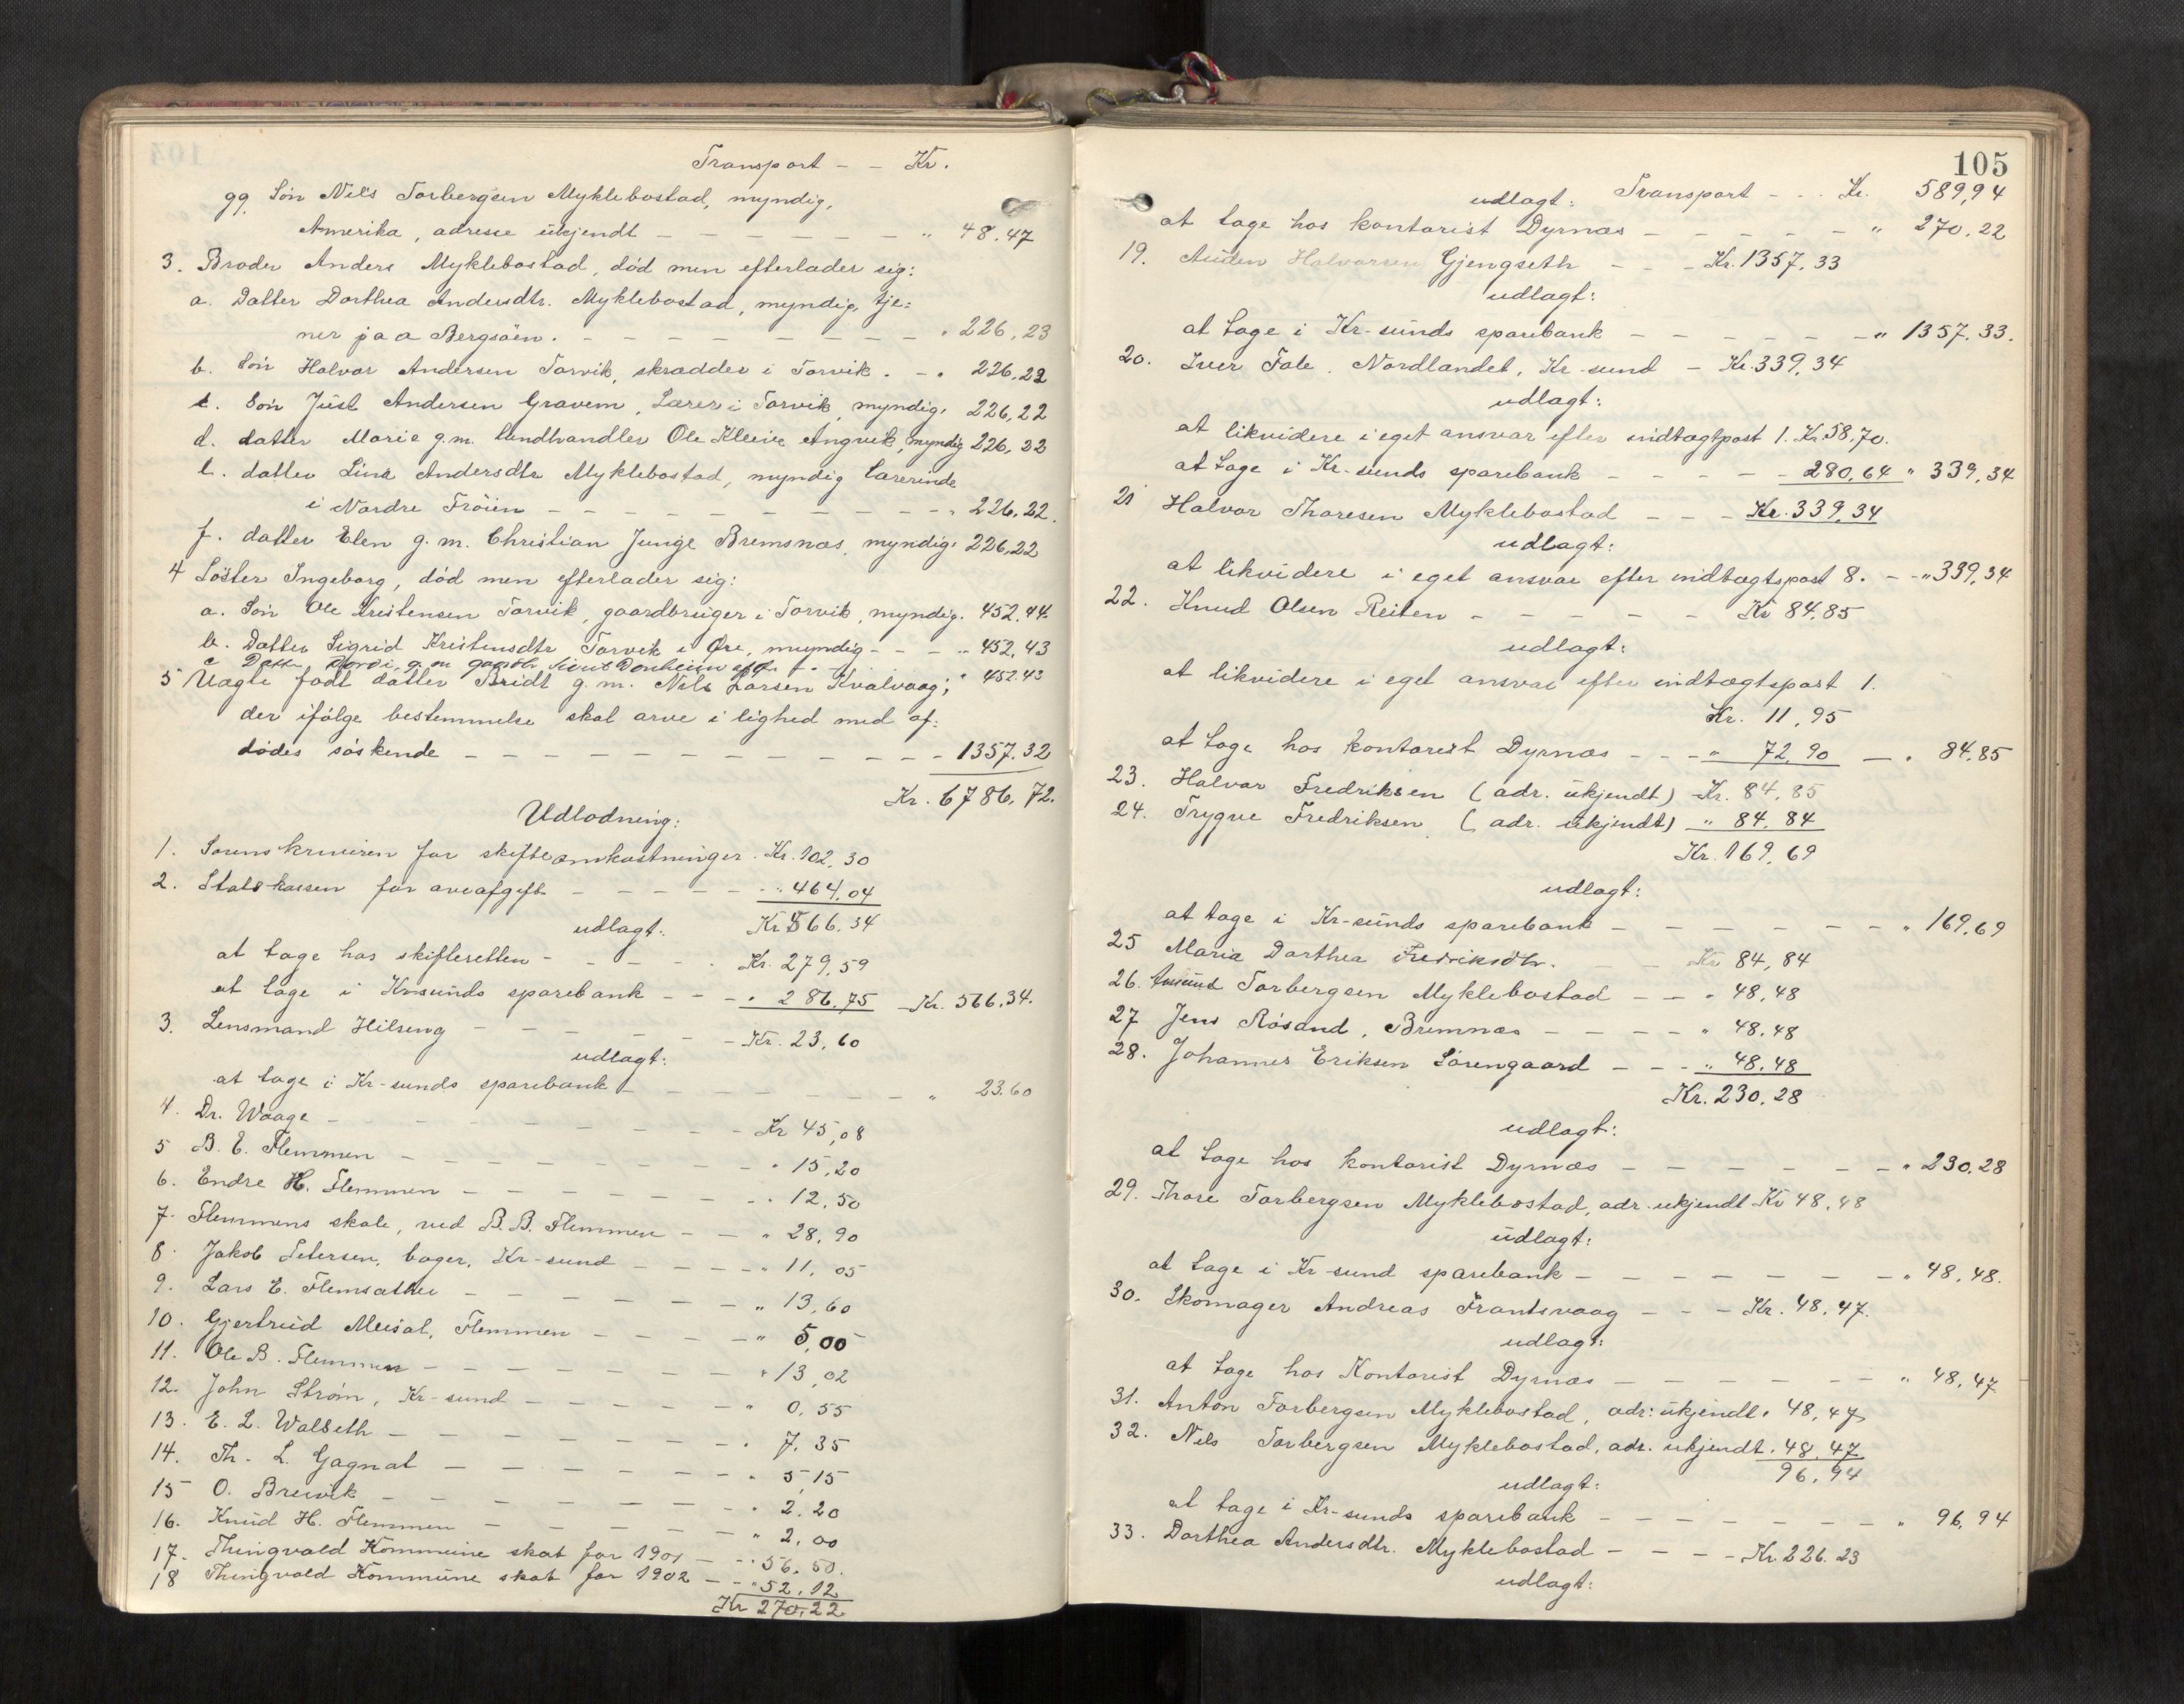 Transport - - Kr.
gg. Søn Nils Torbergsen Myklebostad, myndig,
Amerika, adresse ukjendt - - - - - - " 48,47
3. Broder Anders Myklebostad, død men efterlader sig:
a. Datter Dorthea Andersdtr. Myklebostad, myndig, tje=
ner paa Bergsøen. - - - - - - - - - " 226,23
b. Søn Halvor Andersen Torvik, skrædder i Torvik. - " 226,22
c. Søn Just Andersen Gravem, Lærer i Torvik, myndig, 226,22
d. datter Marie g.m. landhandler Ole Kleive Angvik, myndig 226,22
e. datter Lina Andersdtr Myklebostad, myndig Lærerinde
i Nordre Frøien - - - - - - - - - - " 226,22.
f. datter Elen g.m. Christian Junge Bremsnæs, myndig " 226,22
4 Søster Ingeborg, død men efterlader sig:
a. Søn Ole Kristensen Torvik, gaardbruger i Torvik, myndig. 452,44.
b. Datter Sigrid Kristensdtr Torvik i Øre, myndig - - - " 452,43
c Datter Dordi, g.m. gaardbr. " 452.43
5 Uægte født datter Bridt g.m. Nils Larsen Kvalvaag;
der ifølge bestemmelse skal arve i lighed med af=
dødes søskende - - - - - - - - - - - 1357.32
Kr. 6786,72.
Udlodning:
1. Sorenskriveren for skifteomkostninger. Kr. 102,30
2. Statskassen for arveafgift - - - - - " 464,04
Kr 566,34
udlagt:
at tage hos skifteretten - - - - - Kr. 279,59
at tage i Krsunds sparebank - - - " 286,75 - Kr. 566,34.
3. Lensmand Hilseng - - - - - - Kr. 23,60
udlagt:
at tage i Kr-sunds sparebank - - - - - - - " 23.60
4. Dr. Waage - - - - - - - - - Kr 45,08
5 B. E. Flemmen - - - - - - - - " 15,20
6. Endre H. Flemmen - - - - - - - " 12,50
7. Flemmens skole, ved B. B. Flemmen - - " 28,90
8. Jakob Petersen, bager, Kr-sund - - - - " 11,05
9. Lars E. Flemsæther - - - - - - " 13,60
10. Gjertrud Meisal, Flemmen - - - - " 5,00
11. Ole B. Flemmen - - - - - - - " 13,02
12. John Strøm, Kr-sund - - - - - " 0,55
13. E. L. Walseth - - - - - - - " 7,35
14. Th. L. Gagnat - - - - - - " 5,15
15 O. Breivik - - - - - - - " 2.20
16. Knud H. Flemmen - - - - - " 2,00
17. Thingvold Kommune skat for 1901 - - " 56.50.
18 Thingvold Kommune skat for 1902 - - " 52,12
Kr 270,22
105
Transport - - - Kr. 589,94
udlagt:
at tage hos kontorist Dyrnæs - - - - - " 270,22
19. Auden Halvorsen Gjengseth - - - Kr. 1357,33
udlagt:
at tage i Kr-sunds sparebank - - - - - - " 1357.33.
20. Iver Fale, Nordlandet, Kr-sund - Kr. 339,34
udlagt:
at likvidere i eget ansvar efter indtægtpost 1. Kr. 58,70.
at tage i Kr-sunds sparebank - - - - 280,64 " 339,34
21 Halvor Thoresen Myklebostad - - - Kr. 339,34
udlagt:
at likvidere i eget ansvar efter indtægtspost 8. - - " 339,34
22. Knud Olsen Reiten - - - - - Kr 84,85
udlagt:
at likvidere i eget ansvar efter indtægtspost 1.
Kr. 11,95
at tage hos kontorist Dyrnæs - - - " 72,90 - " 84,85
23. Halvor Fredriksen (adr. ukjendt) Kr. 84,85
24. Trygve Fredriksen (adr. ukjendt) " 84,84
Kr. 169,69
udlagt:
at tage i Kr-sunds sparebank - - - - - - " 169,69
25 Maria Dorthea Fredriksdtr. - - Kr 84,84
26. Amund Torbergsen Myklebostad - - " 48,48
27 Jens Røsand, Bremnæs - - - - " 48,48
28. Johannes Eriksen Sørengaard - - - " 48.48
Kr. 230,28
udlagt:
at tage hos kontorist Dyrnæs - - - - - - " 230,28
29. Thore Torbergsen Myklebostad, adr. ukjendt Kr 48,48
udlagt:
at tage i Kr-sund sparebank - - - - - - - " 48,48.
30. Skomager Andreas Frantsvaag - - - Kr. 48,47.
udlagt:
at tage hos Kontorist Dyrnæs - - - - - - " 48,47
31. Anton Torbergsen Myklebostad, adr: ukjendt " 48,47
32. Nils Torbergsen Myklebostad, adr. ukjendt. 48,47
96,94
udlagt:
at tage i Kr-sunds sparebank - - - - - - - " 96,94
33. Dorthea Andersdtr. Myklebostad - - - - Kr. 226.23
udlagt: